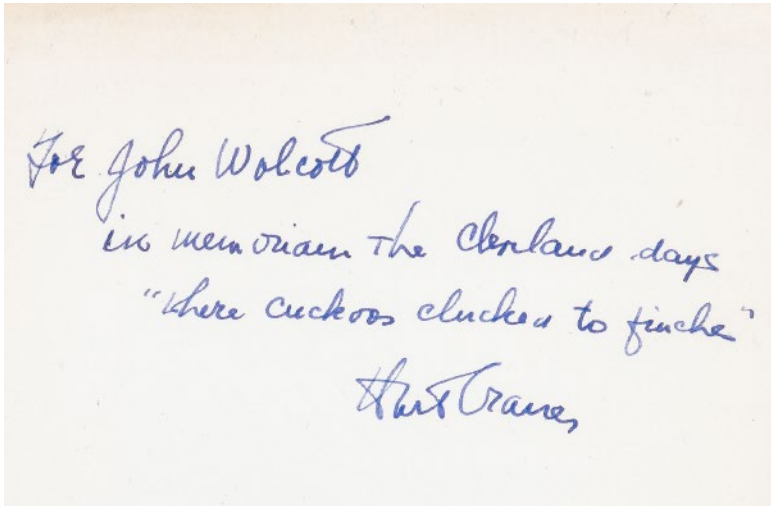 For John Wolcott
in memoriam the Cleveland days
"where cuckoos clucked to finches"
Hart Crane